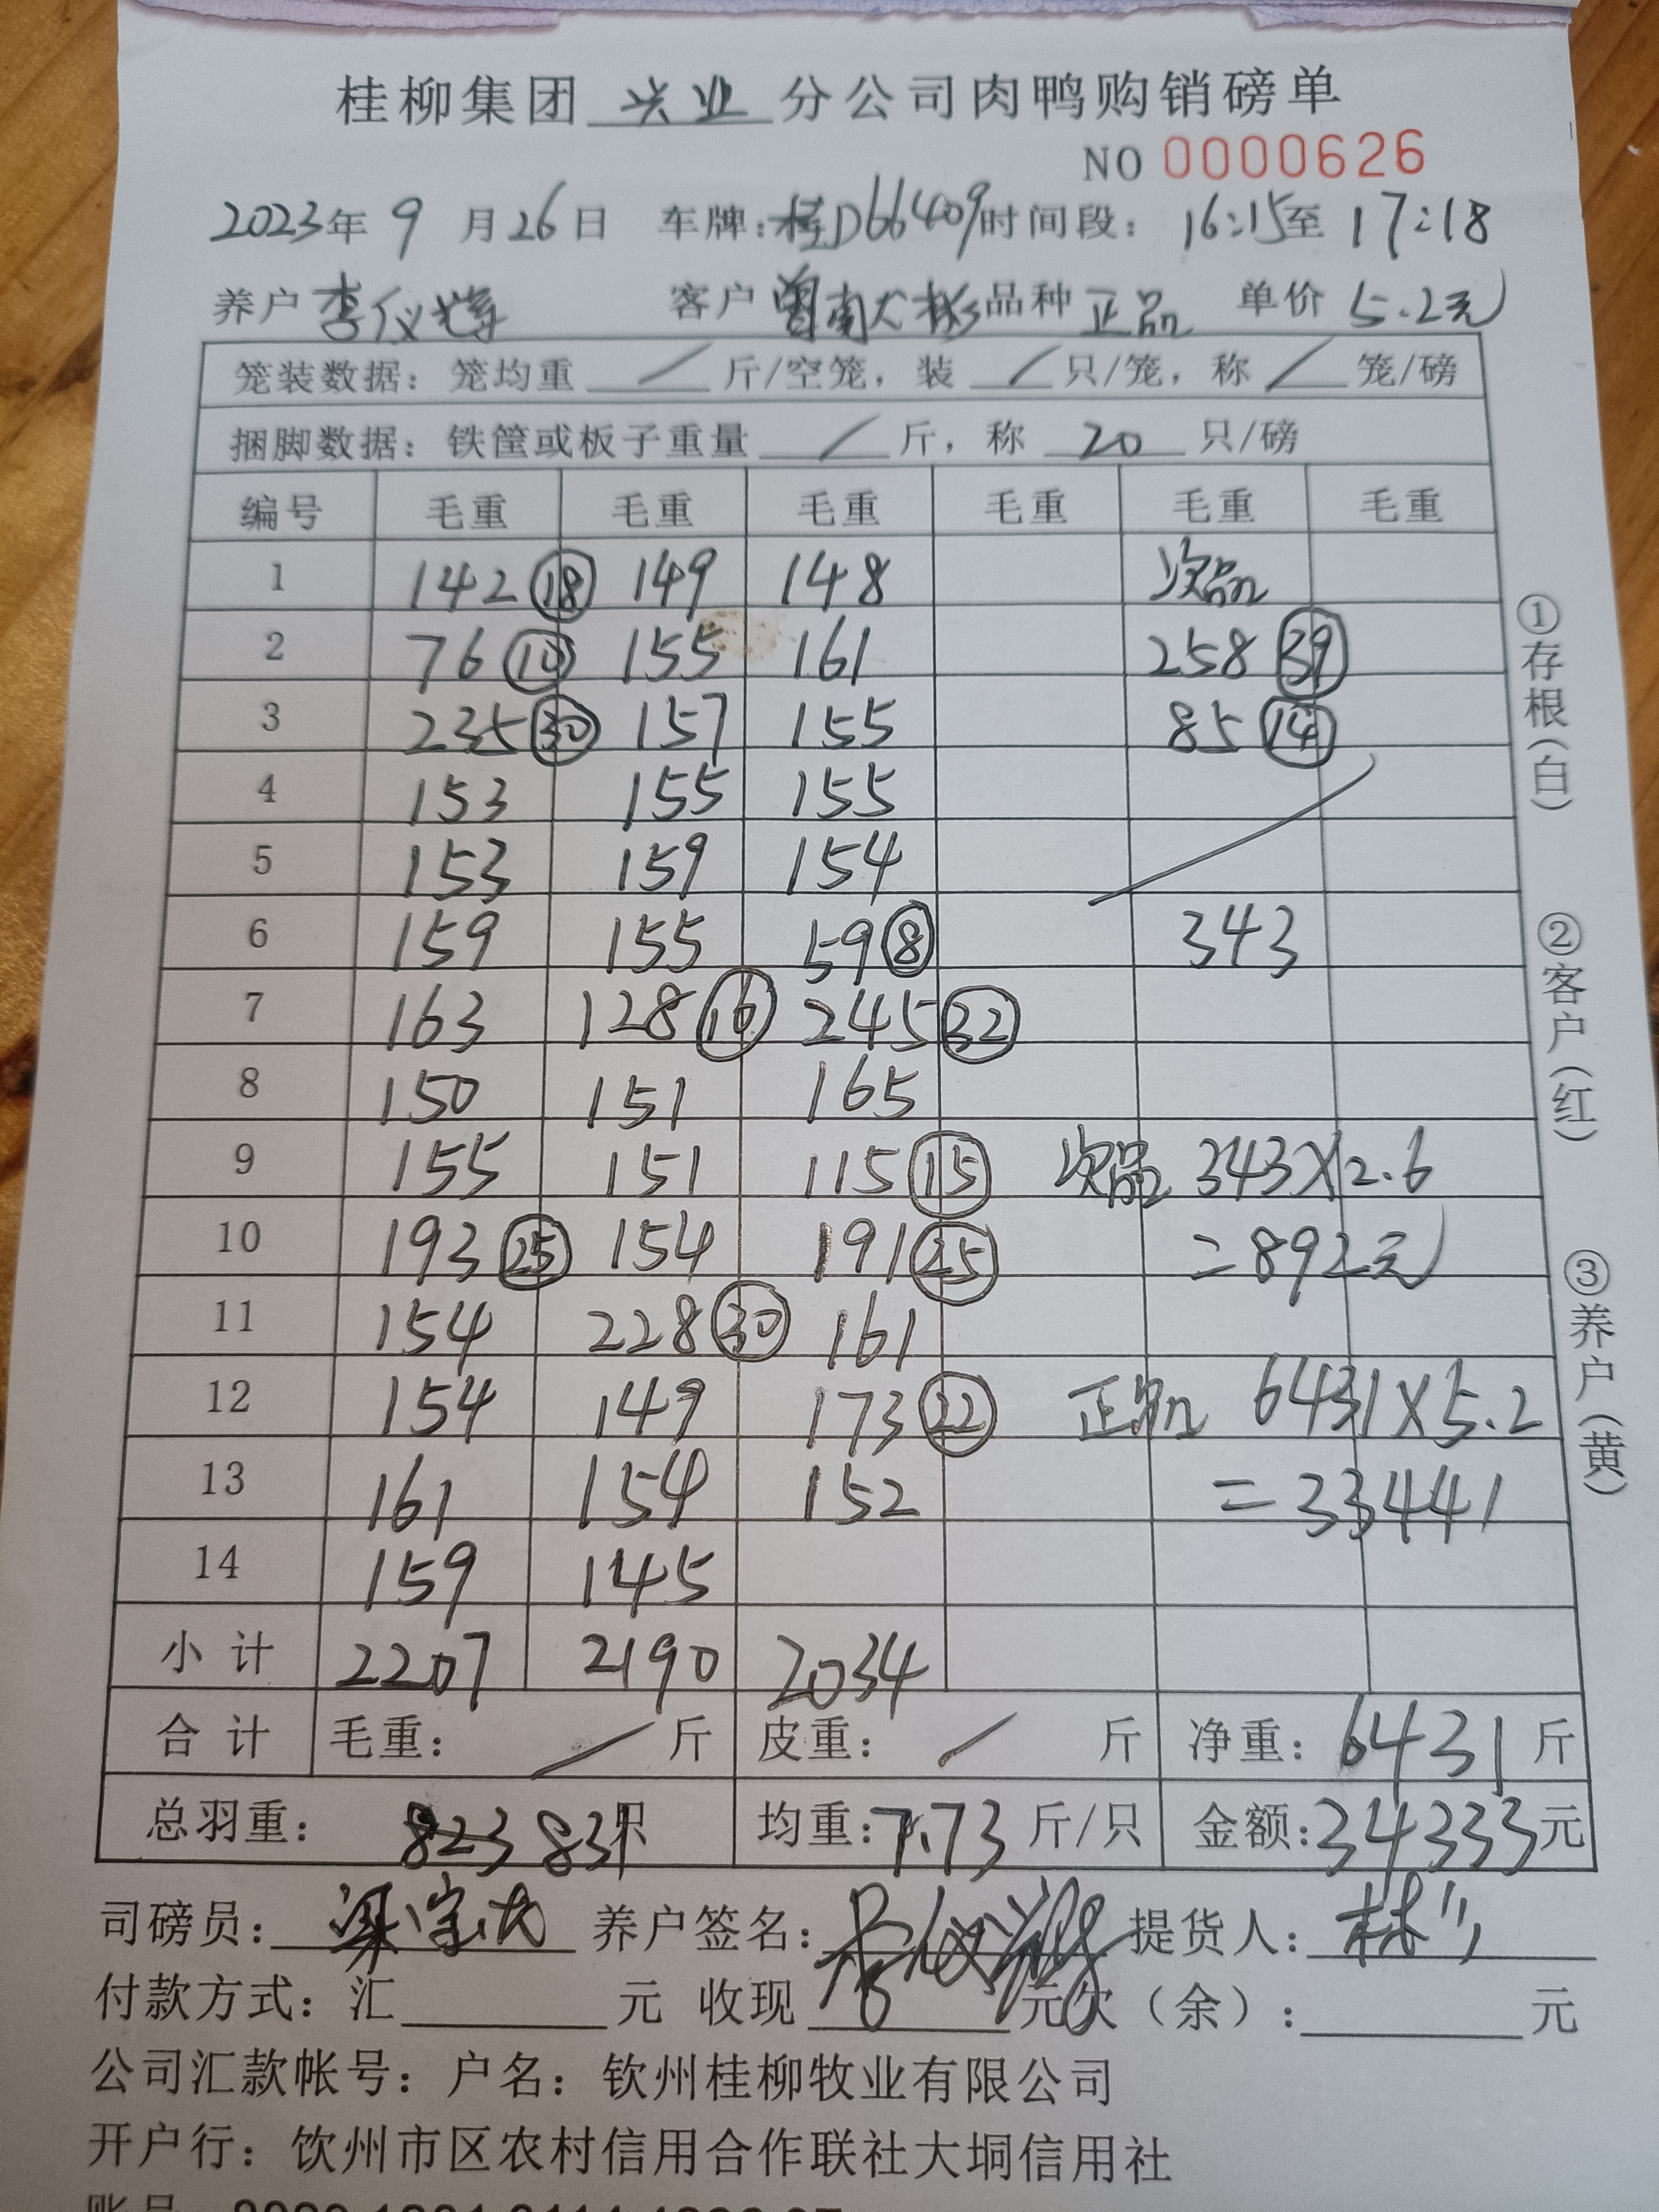 桂柳集团 兴业 分公司肉鸭购销磅单
NO 0000626
2023年 9 月 26 日 车牌:桂D66409 时间段: 16:15至 17:18
养户 李仪 客户 南大彬 品种 正品 单价 5.2元
笼装数据: 笼均重 / 斤/空笼, 装 / 只/笼, 称 / 笼/磅
捆脚数据: 铁筐或板子重量 / 斤, 称 20 只/磅
编号 毛重 毛重 毛重 毛重 毛重 毛重
1 142 ⑱ 149 148 次品
2 76 ⑩ 155 161 258 ㊴
3 235 ㉚ 157 155 85 ⑭
4 153 155 155
5 153 159 154
6 159 155 59 ⑧ 343
7 163 128 ⑯ 245 ㉜
8 150 151 165
9 155 151 115 ⑮ 次品 343×2.6
10 193 ㉕ 154 191 ㉕ =892元
11 154 228 ㉚ 161
12 154 149 173 ㉒ 正品 6431×5.2
13 161 154 152 =33441
14 159 145
小计 2207 2190 2034
合计 毛重: / 斤 皮重: / 斤 净重: 6431 斤
总羽重: 823 831只 均重: 7.73 斤/只 金额: 34333元
司磅员: 梁 养户签名: 李仪 提货人: 林
付款方式: 汇 元 收现 元欠(余): 元
公司汇款帐号: 户名: 钦州桂柳牧业有限公司
开户行: 饮州市区农村信用合作联社大垌信用社
账号
①存根(白)
②客户(红)
③养户(黄)